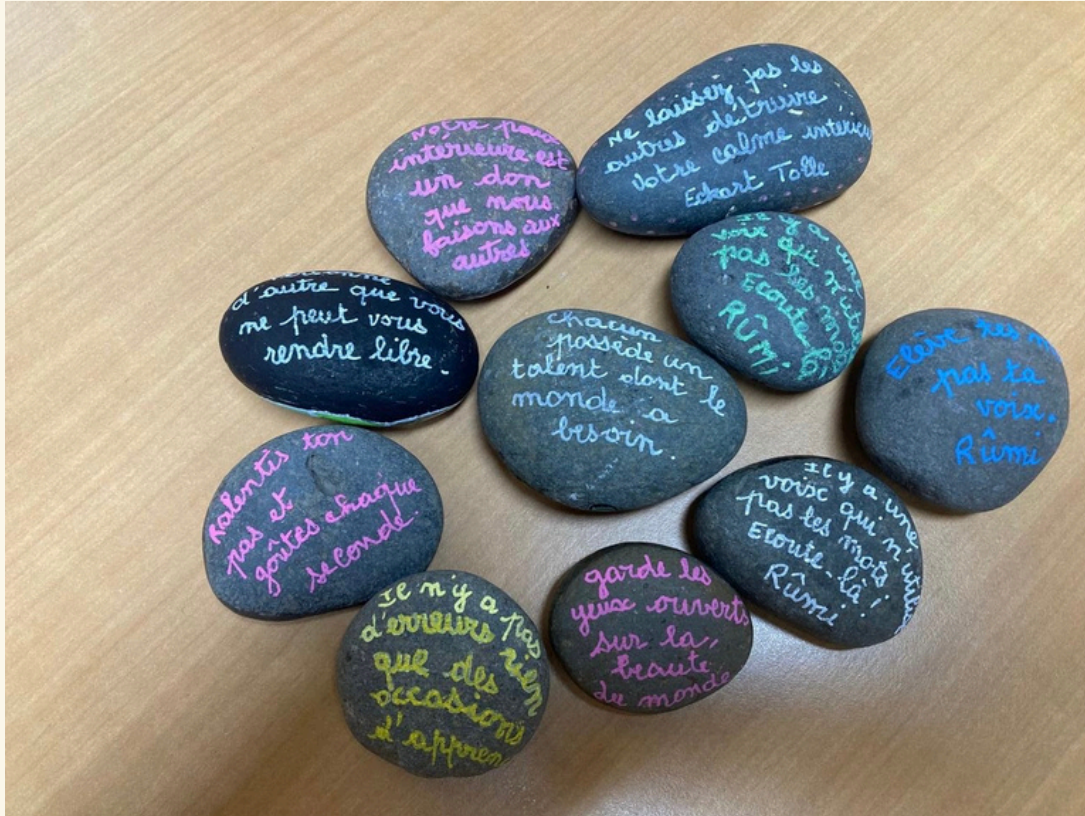 Notre paix
intérieure est
un don
que nous
faisons aux
autres
Ne laissez pas les
autres détruire
votre calme intérieu
Eckart Tolle
d'autre que vous
ne peut vous
rendre libre.
Il y a une
voix qui n'utilise
pas les mots
Ecoute-là!
RÛMI
chacun
possède un
talent dont le
monde a
besoin.
Elève tes m
pas ta
voix.
Rûmi
Ralentis ton
pas et
goûtes chaque
seconde.
Il y a une
voix qui n'utilise
pas les mots
Ecoute-là!
Rûmi
Il n'y a pas
d'erreurs rien
que des
occasions
d'appren
garde les
yeux ouverts
sur la
beauté
du monde